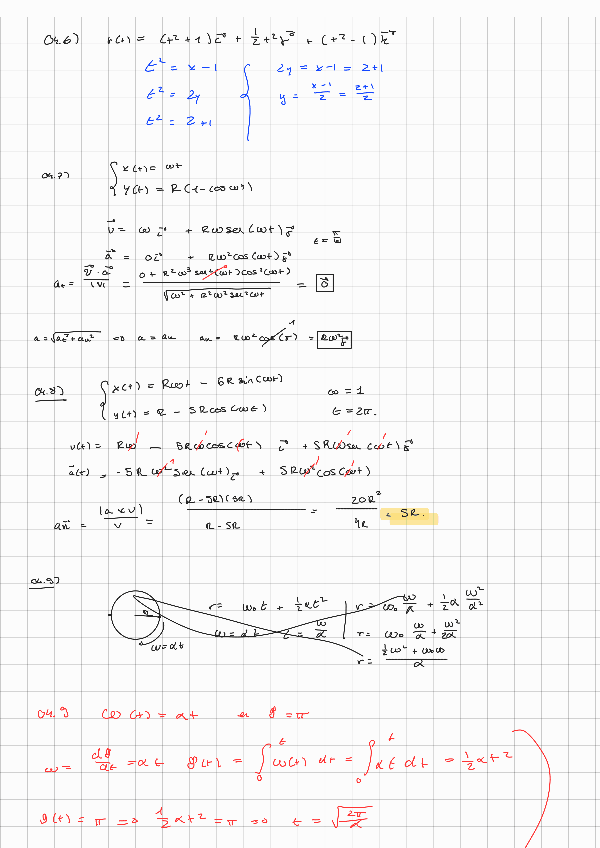 04.6) r(t) = (t²+1)i + 1/2 t² j + (t²-1)k
t² = x-1 { 2y = x-1 = z+1
t² = 2y y = (x-1)/2 = (z+1)/2
t² = z+1
04.7) { x(t) = ωt
y(t) = R(1-cos ωt)
v = ω i + Rω sen(ωt) j
t = π/ω
a = 0i + Rω² cos(ωt) j
at = (v·a)/|v| = (0 + R²ω³ sen(ωt) cos(ωt))/√(ω² + R²ω² sen² ωt) = 0
a = √(at²+an²) => a = an an = Rω² cos(π) = Rω² j
04.8) { x(t) = Rωt - 5R sin(ωt) ω = 1
y(t) = R - 5R cos(ωt) t = 2π.
v(t) = Rω - 5Rω cos(ωt) i + 5Rω sen(ωt) j
a(t) = -5Rω² sen(ωt) i + 5Rω² cos(ωt)
an = |a x v|/v = (R-5R)(5R)/(R-5R) = 20R²/4R = 5R.
04.9)
r = ω₀t + 1/2 αt² | r = ω₀ ω/α + 1/2 α ω²/α²
ω = αt t = ω/α | r = ω₀ ω/α + ω²/2α
ω=αt r = (1/2 ω² + ω₀ω)/α
04.9 ω(t) = αt θ = π
ω = dθ/dt = αt θ(t) = ∫₀ᵗ ω(t) dt = ∫₀ᵗ αt dt = 1/2 αt²
θ(t) = π => 1/2 αt² = π => t = √(2π/α)